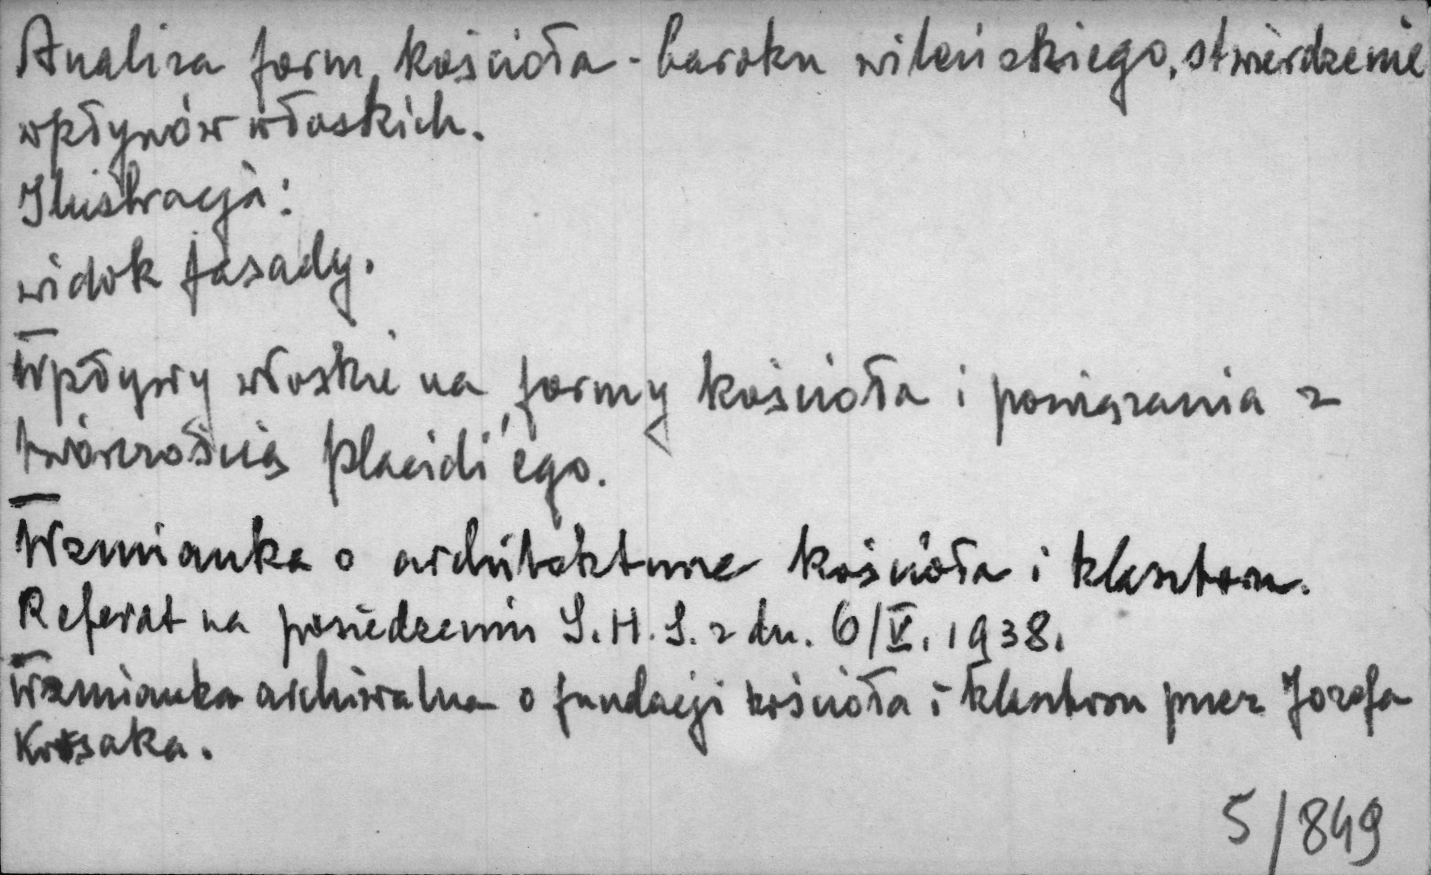 Analiza form kościoła - baroku wileńskiego, stwierdzenie
wpływów włoskich.
Ilustracja:
widok fasady.
Wpływy włoskie na formy kościoła i powiązania z
twórczością Placidi'ego.
Wzmianka o architekturze kościoła i klasztoru.
Referat na posiedzeniu S.H.S. z dn. 6/V. 1938.
Wzmianka archiwalna o fundacji kościoła i klasztoru przez Józefa
Korsaka.
5/849